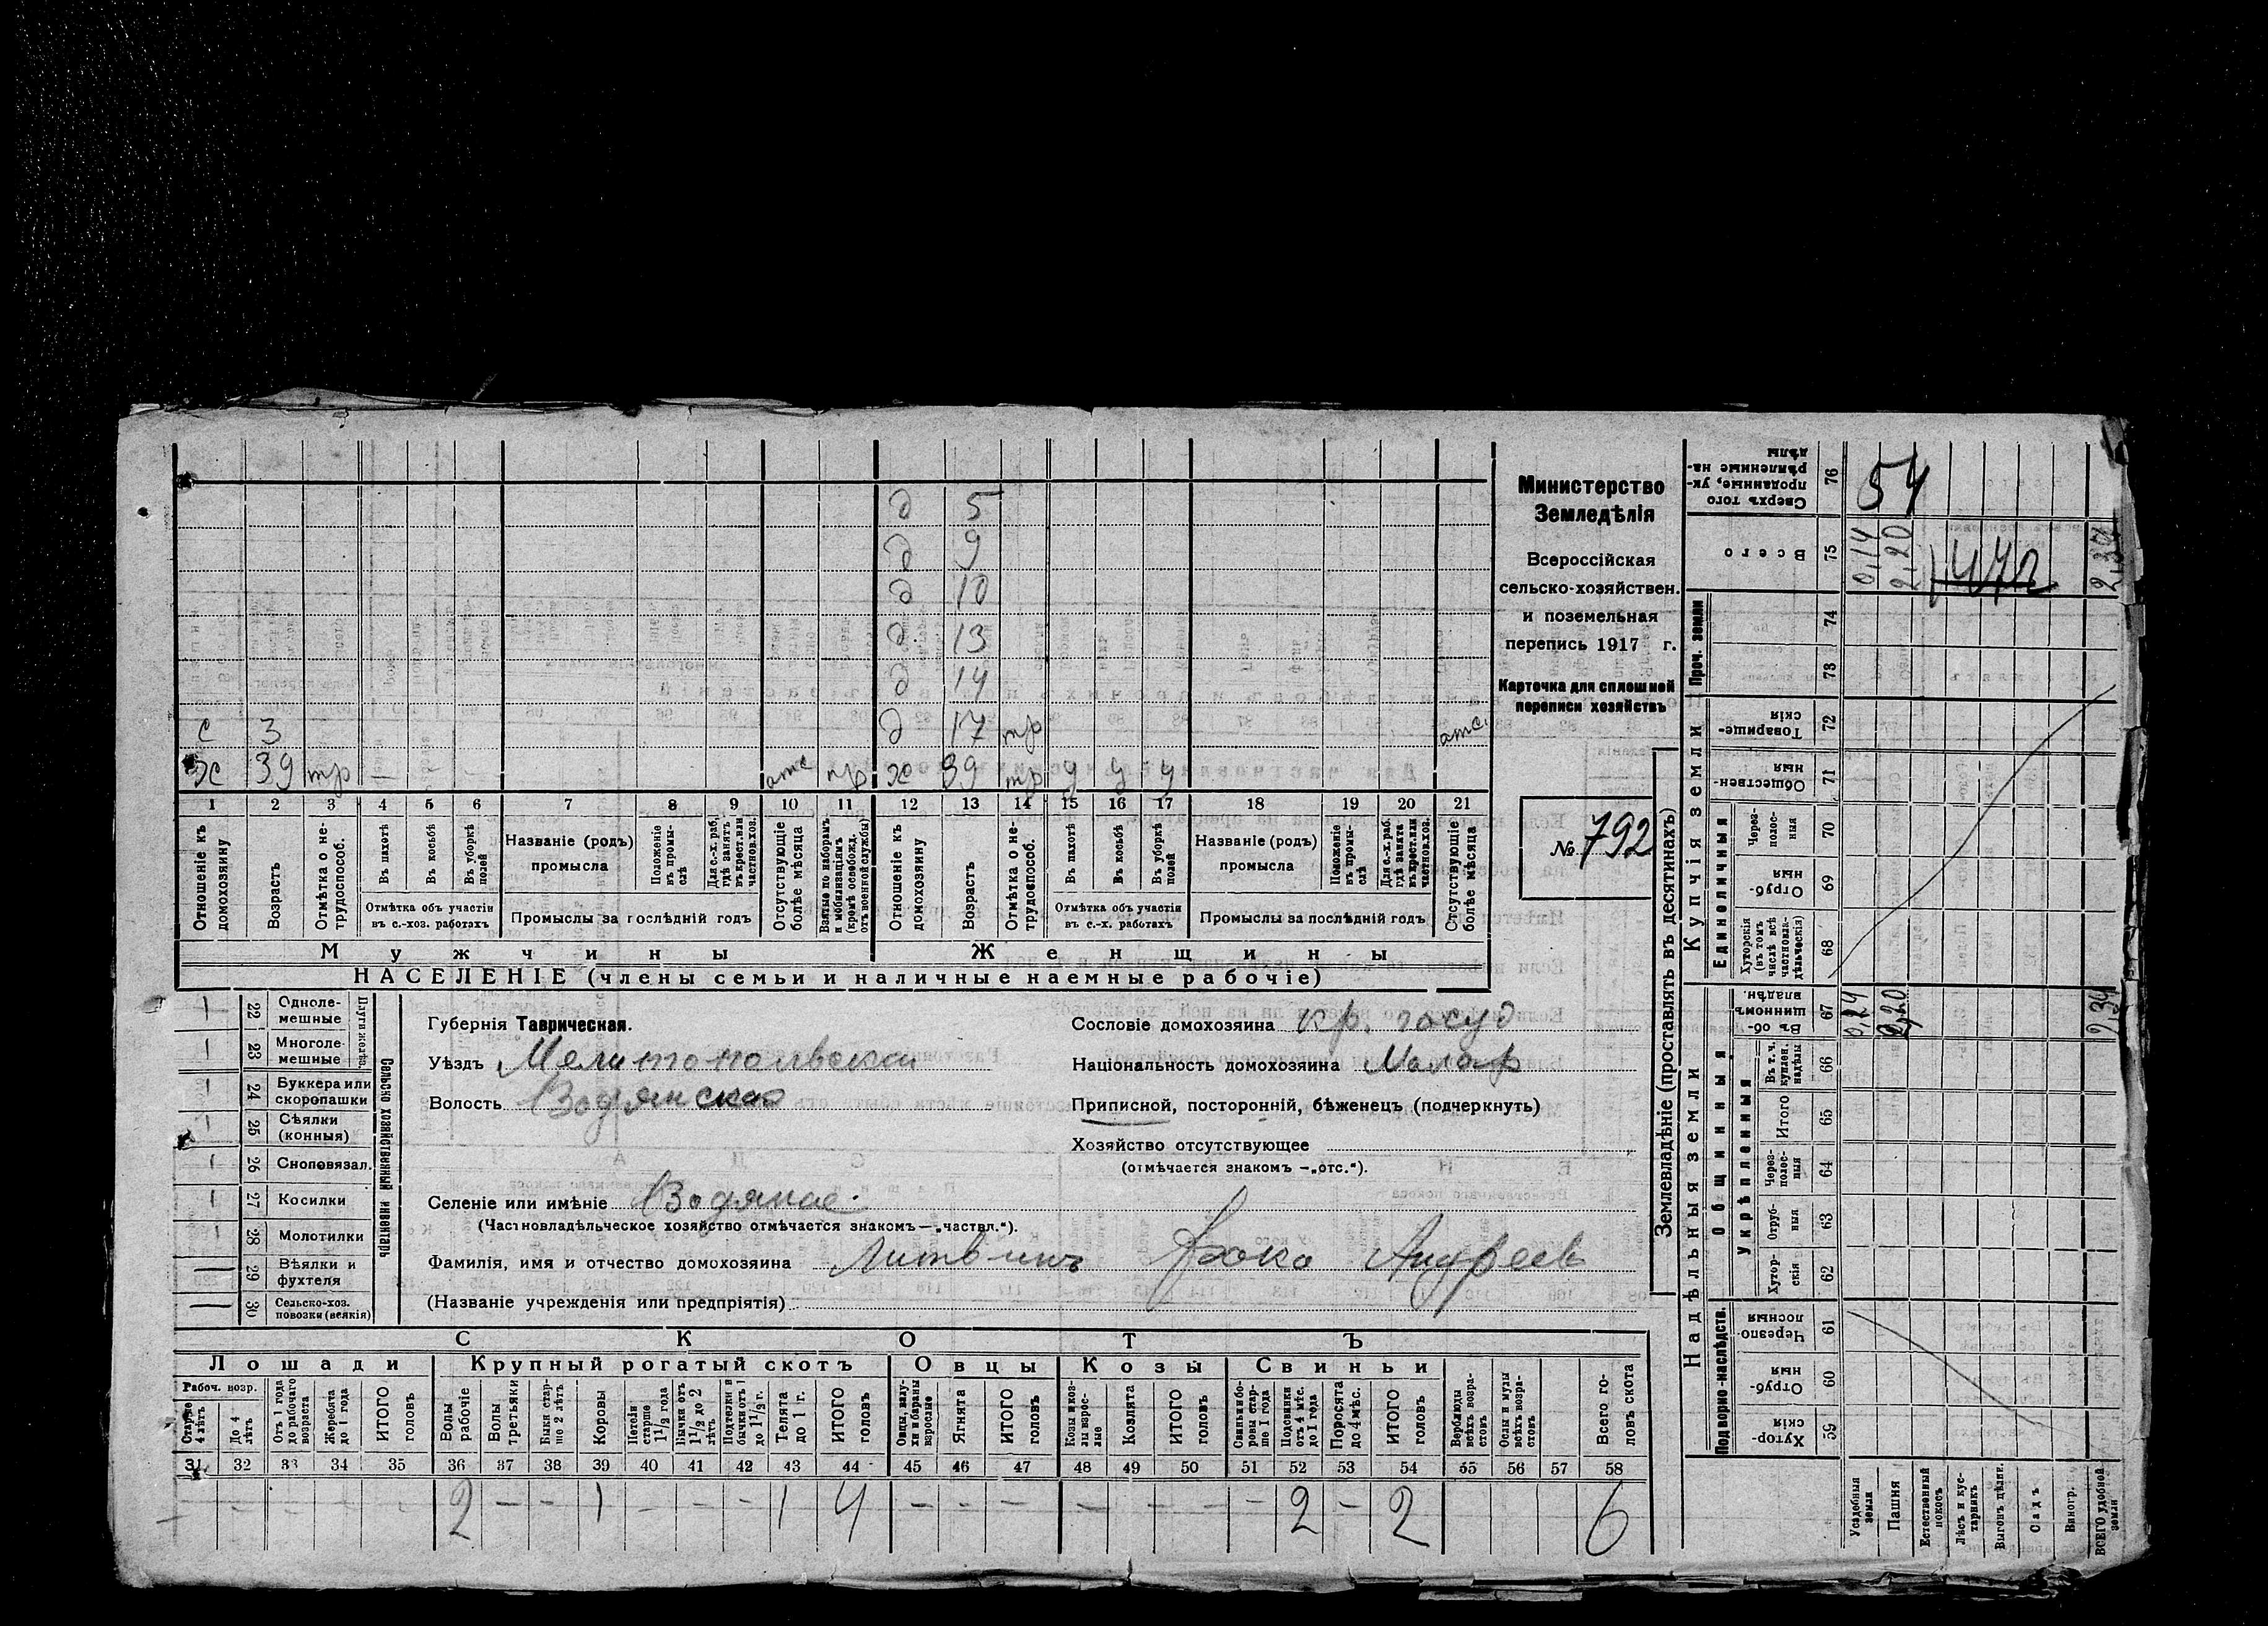 д 5
д 9
д 10
д 13
д 14
с 3 д 17 тр отс.
х 39 тр — отс пр ж 39 тр у у у
1 2 3 4 5 6 7 8 9 10 11 12 13 14 15 16 17 18 19 20 21
Отношеніе къ домохозяину
Возрастъ
Отмѣтка о не-трудоспособ.
Въ пахотѣ
Въ косьбѣ
Въ уборкѣ полей
Отмѣтка объ участіи въ с.-хоз. работахъ
Названіе (родъ) промысла
Положеніе въ промы-слѣ
Для с.-х. раб. гдѣ занятъ въ крест. или частнов. хоз.
Промыслы за послѣдній годъ
Отсутствующіе болѣе мѣсяца
Взятые по наборамъ и мобилизаціямъ (кромѣ освобожд. отъ военной службы)
Отношеніе къ домохозяину
Возрастъ
Отмѣтка о не-трудоспособ.
Въ пахотѣ
Въ косьбѣ
Въ уборкѣ полей
Отмѣтка объ участіи въ с.-х. работахъ
Названіе (родъ) промысла
Положеніе въ промы-слѣ
Для с.-х. раб. гдѣ занята въ крест. или частнов. хоз.
Промыслы за послѣдній годъ
Отсутствующіе болѣе мѣсяца
Мужчины Женщины
НАСЕЛЕНІЕ (члены семьи и наличные наемные рабочіе)
Министерство
Земледѣлія
Всероссійская
сельско-хозяйствен.
и поземельная
перепись 1917 г.
Карточка для сплошной
переписи хозяйствъ
№ 792
Сельско хозяйственный инвентарь
Плуги желѣз.
22 Одноле-мешные
23 Многоле-мешные
24 Буккера или скоропашки
25 Сѣялки (конныя)
26 Сноповязал.
27 Косилки
28 Молотилки
29 Вѣялки и фухтеля
30 Сельско-хоз. повозки (всякія)
Губернія Таврическая.
Уѣздъ Мелитопольскій
Волость Водянская
Селеніе или имѣніе Водяное.
(Частновладѣльческое хозяйство отмѣчается знакомъ—„частвл.“).
Фамилія, имя и отчество домохозяина Литвинъ Фока Андреев
(Названіе учрежденія или предпріятія)
Сословіе домохозяина кр. госуд
Національность домохозяина Малор
Приписной, посторонній, бѣженецъ (подчеркнуть)
Хозяйство отсутствующее
(отмѣчается знакомъ —„отс.“).
СКОТЪ
Лошади Крупный рогатый скотъ Овцы Козы Свиньи
Рабоч. возр.
Старше 4 лѣтъ
До 4 лѣтъ
Отъ 1 года до рабочаго возраста
Жеребята до 1 года
ИТОГО головъ
Волы рабочіе
Волы третьяки
Быки стар-ше 2 лѣтъ
Коровы
Нетели старше 1 1/2 года
Бычки отъ 1 1/2 до 2 лѣтъ
Подтелки и бычки отъ 1 до 1 1/2 г.
Телята до 1 г.
ИТОГО головъ
Овцы, валу-хи и бараны взрослые
Ягнята
ИТОГО головъ
Козы и коз-лы взрос-лые
Козлята
ИТОГО головъ
Свиньи и бо-ровы стар-ше 1 года
Подсвинки отъ 4 мѣс. до 1 года
Поросята до 4 мѣс.
ИТОГО головъ
Верблюды всѣхъ возра-стовъ
Ослы и мулы всѣхъ возра-стовъ
Всего го-ловъ скота
31 32 33 34 35 36 37 38 39 40 41 42 43 44 45 46 47 48 49 50 51 52 53 54 55 56 57 58
— — — — — 2 — — 1 — — — 1 4 — — — — — — — 2 — 2 6
Землевладѣніе (проставлять въ десятинахъ)
Надѣльныя земли
Купчія земли
Проч. земли
Подворно-наслѣдств.
Общинныя
Укрѣпленныя
Единоличныя
Сверхъ того проданные, ук-рѣпленные на-дѣлы 76 54
Всего 75 0,14 2,20 472 2,34
74
73
Товарище-скія 72
Обществен-ныя 71
Через-полос-ныя 70
Отруб-ныя 69
Хуторскія (въ томъ числѣ всѣ частновла-дѣльческія) 68
Въ об-щинномъ владѣн. 67 0,24 2,20 2,34
Въ т. ч. куплен. надѣлы 66
Итого 65
Через-полос-ныя 64
Отруб-ныя 63
Хутор-скія 62
Черезпо-лосныя 61
Отруб-ныя 60
Хутор-скія 59
Усадебныя земли
Пашня
Естественный покосъ
Лѣсъ и кус-тарникъ
Выгонъ дѣлин.
Садъ
Виногр.
ВСЕГО удобной земли